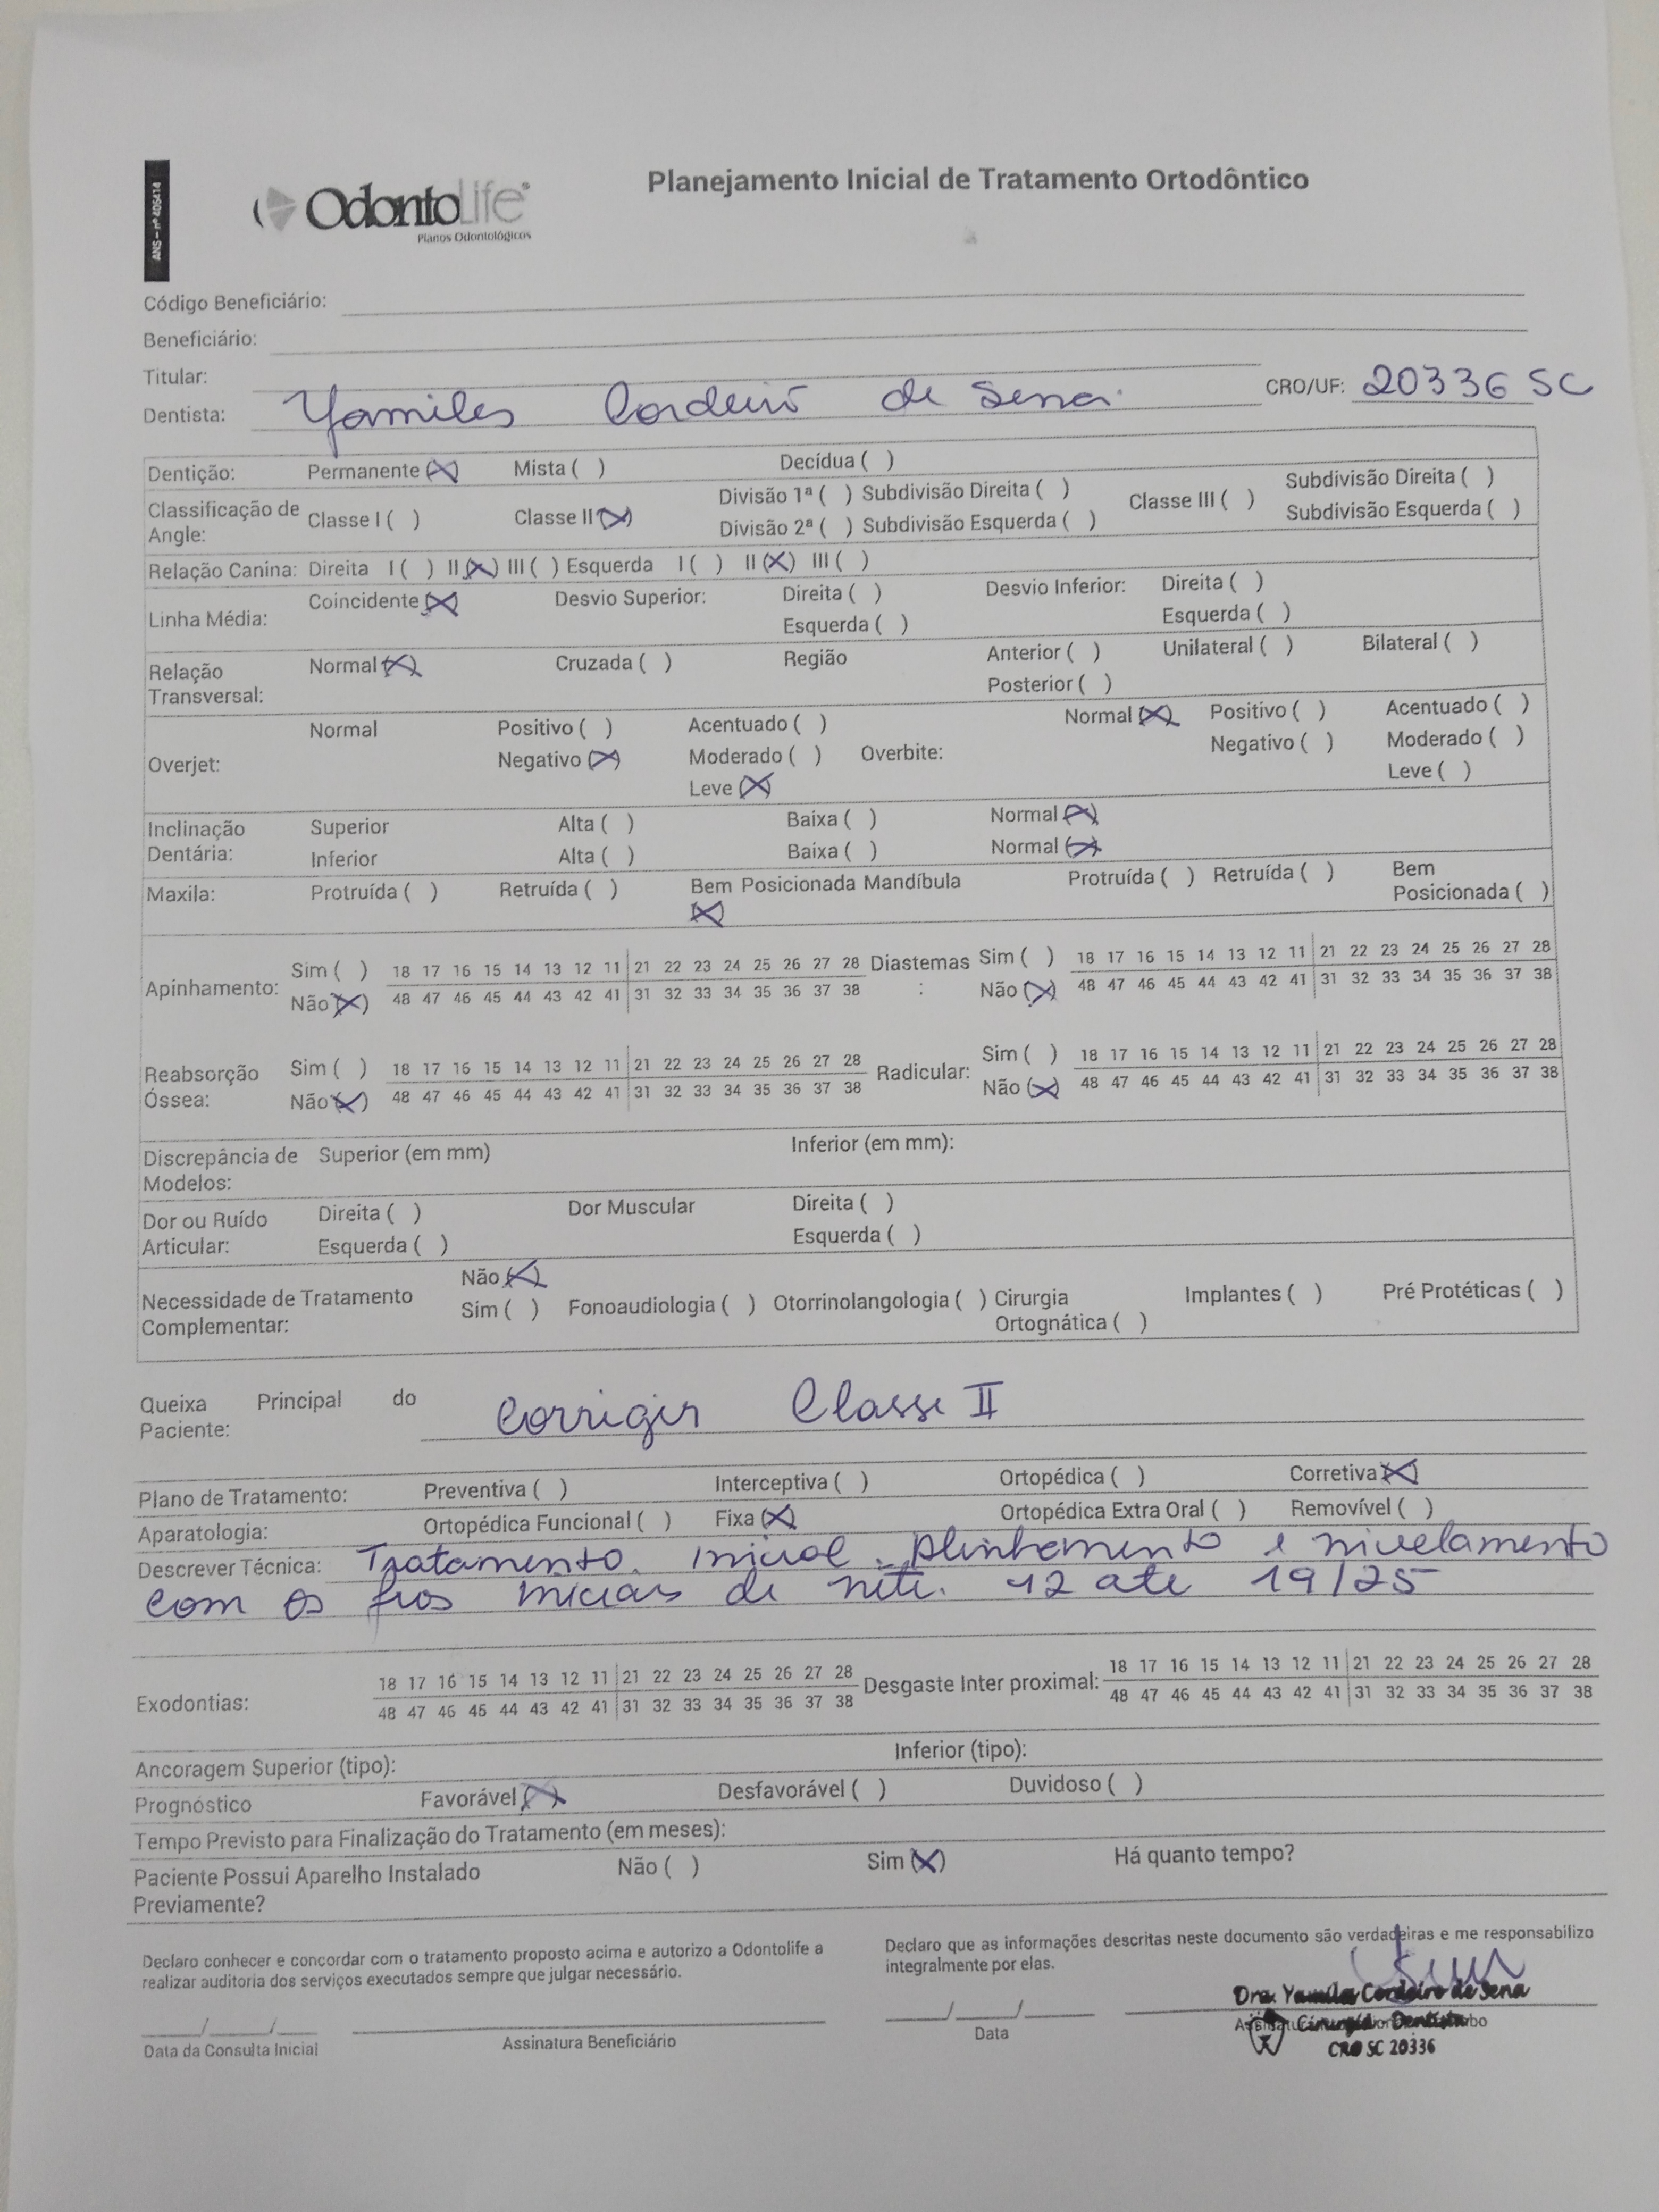 Planejamento Inicial de Tratamento Ortodôntico
ANS – nº 406414
OdontoLife®
Planos Odontológicos
Código Beneficiário:
Beneficiário:
Titular:
Dentista: Yamiles Cordeiro de Sena CRO/UF: 20336 SC
Dentição: Permanente (X) Mista ( ) Decídua ( )
Classificação de Angle: Classe I ( ) Classe II (X) Divisão 1ª ( ) Subdivisão Direita ( ) Classe III ( ) Subdivisão Direita ( )
Divisão 2ª ( ) Subdivisão Esquerda ( ) Subdivisão Esquerda ( )
Relação Canina: Direita I ( ) II (X) III ( ) Esquerda I ( ) II (X) III ( )
Linha Média: Coincidente (X) Desvio Superior: Direita ( ) Desvio Inferior: Direita ( )
Esquerda ( ) Esquerda ( )
Relação Transversal: Normal (X) Cruzada ( ) Região Anterior ( ) Unilateral ( ) Bilateral ( )
Posterior ( )
Overjet: Normal Positivo ( ) Acentuado ( ) Overbite: Normal (X) Positivo ( ) Acentuado ( )
Negativo (X) Moderado ( ) Negativo ( ) Moderado ( )
Leve (X) Leve ( )
Inclinação Dentária: Superior Alta ( ) Baixa ( ) Normal (X)
Inferior Alta ( ) Baixa ( ) Normal (X)
Maxila: Protruída ( ) Retruída ( ) Bem Posicionada (X) Mandíbula Protruída ( ) Retruída ( ) Bem Posicionada ( )
Apinhamento: Sim ( ) 18 17 16 15 14 13 12 11 21 22 23 24 25 26 27 28 Diastemas : Sim ( ) 18 17 16 15 14 13 12 11 21 22 23 24 25 26 27 28
Não (X) 48 47 46 45 44 43 42 41 31 32 33 34 35 36 37 38 Não (X) 48 47 46 45 44 43 42 41 31 32 33 34 35 36 37 38
Reabsorção Óssea: Sim ( ) 18 17 16 15 14 13 12 11 21 22 23 24 25 26 27 28 Radicular: Sim ( ) 18 17 16 15 14 13 12 11 21 22 23 24 25 26 27 28
Não (X) 48 47 46 45 44 43 42 41 31 32 33 34 35 36 37 38 Não (X) 48 47 46 45 44 43 42 41 31 32 33 34 35 36 37 38
Discrepância de Modelos: Superior (em mm) Inferior (em mm):
Dor ou Ruído Articular: Direita ( ) Dor Muscular Direita ( )
Esquerda ( ) Esquerda ( )
Necessidade de Tratamento Complementar: Não (X)
Sim ( ) Fonoaudiologia ( ) Otorrinolangologia ( ) Cirurgia Ortognática ( ) Implantes ( ) Pré Protéticas ( )
Queixa Principal do Paciente: Corrigir Classe II
Plano de Tratamento: Preventiva ( ) Interceptiva ( ) Ortopédica ( ) Corretiva (X)
Aparatologia: Ortopédica Funcional ( ) Fixa (X) Ortopédica Extra Oral ( ) Removível ( )
Descrever Técnica: Tratamento. Inicial. Alinhamento e nivelamento
com os fios iniciais de niti. 12 até 19/25
Exodontias: 18 17 16 15 14 13 12 11 21 22 23 24 25 26 27 28 Desgaste Inter proximal: 18 17 16 15 14 13 12 11 21 22 23 24 25 26 27 28
48 47 46 45 44 43 42 41 31 32 33 34 35 36 37 38 48 47 46 45 44 43 42 41 31 32 33 34 35 36 37 38
Ancoragem Superior (tipo): Inferior (tipo):
Prognóstico Favorável (X) Desfavorável ( ) Duvidoso ( )
Tempo Previsto para Finalização do Tratamento (em meses):
Paciente Possui Aparelho Instalado Previamente? Não ( ) Sim (X) Há quanto tempo?
Declaro conhecer e concordar com o tratamento proposto acima e autorizo a Odontolife a
realizar auditoria dos serviços executados sempre que julgar necessário.
Declaro que as informações descritas neste documento são verdadeiras e me responsabilizo
integralmente por elas.
___/___/___
Data da Consulta Inicial
Assinatura Beneficiário
___/___/___
Data
Dra. Yamila Cordeiro de Sena
Cirurgiã-Dentista
CRO SC 20336